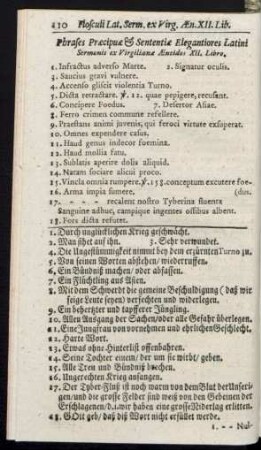 410 Flosculi Lat. Serm. ex Virg. Æn. XII. Lib.
Phrases Præcipuæ & Sententiæ Elegantiores Latini
Sermonis ex Virgilianæ Æneidos XII. Libro.
1. Infractus adverso Marte. 2. Signatur oculis.
3. Saucius gravi vulnere.
4. Accenso gliscit violentia Turno.
5. Dicta retractare. ꝟ. 12. quæ pepigere, recusant.
6. Concipere Foedus. 7. Desertor Asiae.
8. Ferro crimen commune refellere.
9. Præstans animi juvenis, qui feroci virtute exsuperat.
10. Omnes expendere casus.
11. Haud genus indecor foemina.
12. Haud mollia fatu.
13. Sublatis aperire dolis aliquid.
14. Natam sociare alicui proco.
15. Vincla omnia rumpere. ꝟ. 158. conceptum excutere foe-
16. Arma impia sumere, (dus.
17. - - - recalent nostro Tyberina fluenta
Sanguine adhuc, campique ingentes ossibus albent.
18. Fors dicta refutet.
1. Durch unglücklichen Krieg geschwächt.
2. Man sihet auf ihn. 3. Sehr verwundet.
4. Die Ungestümmigkeit nimmt bey dem erzürnten Turno zu.
5. Von seinen Worten abstehen / widerruffen.
6. Ein Bündniß machen / oder abfassen.
7. Ein Flüchtling aus Asien.
8. Mit dem Schwerdt die gemeine Beschuldigung (daß wir
feige Leute seyen) versechten und widerlegen.
9. Ein beherzter und tapfferer Jüngling.
10. Allen Ausgang der Sachen / oder alle Gefahr überlegen.
11. Eine Jungfrau von vornehmen und ehrlichen Geschlecht.
12. Harte Wort.
13. Etwas ohne Hinterlist offenbahren.
14. Seine Tochter einem / der um sie wirbt / geben.
15. Alle Treu und Bündniß brechen.
16. Ungerechten Krieg anfangen.
17. Der Tyber-Fluß ist noch warm von dem Blut der Unseri-
gen / und die grosse Felder sind weiß von den Gebeinen der
Erschlagenen / d. i. wir haben eine grosse Niderlag erlitten.
18. GOtt geb / daß diß Wort nicht erfüllet werde.
1. - - Nul-